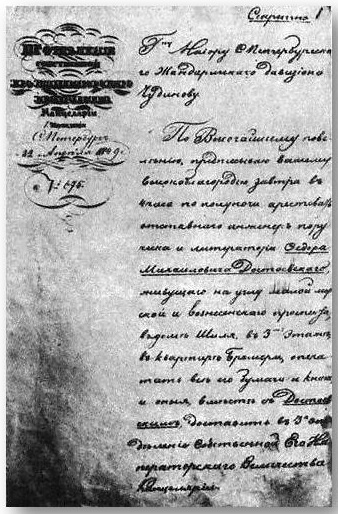 Секретно 1
III ОТДѢЛЕНІЕ
СОБСТВЕННОЙ
ЕГО ИМПЕРАТОРСКАГО
ВЕЛИЧЕСТВА
Канцеляріи
С. Петербургъ
22 Апрѣля 1849 г.
№ 675.
Гну Маіору С. Петербургска
го Жандармскаго дивизіона
Чудинову.
По Высочайшему пове-
лѣнію, предписываю вашему
Высокоблагородію завтра въ
4 часа по полуночи арестовать
отставнаго инженеръ пору
чика и литератора Ѳедора
Михайловича Достоевскаго,
живущаго на углу малой мор
ской и вознесенскаго проспекта,
въ домѣ Шиля, въ 3мъ этажѣ,
въ квартирѣ Бремера, опеча
тать всѣ его бумаги и книги
и оныя, вмѣстѣ съ Достоев
скимъ, доставить въ 3е от
дѣленіе Собственной Его Им
ператорскаго Величества
Канцеляріи.